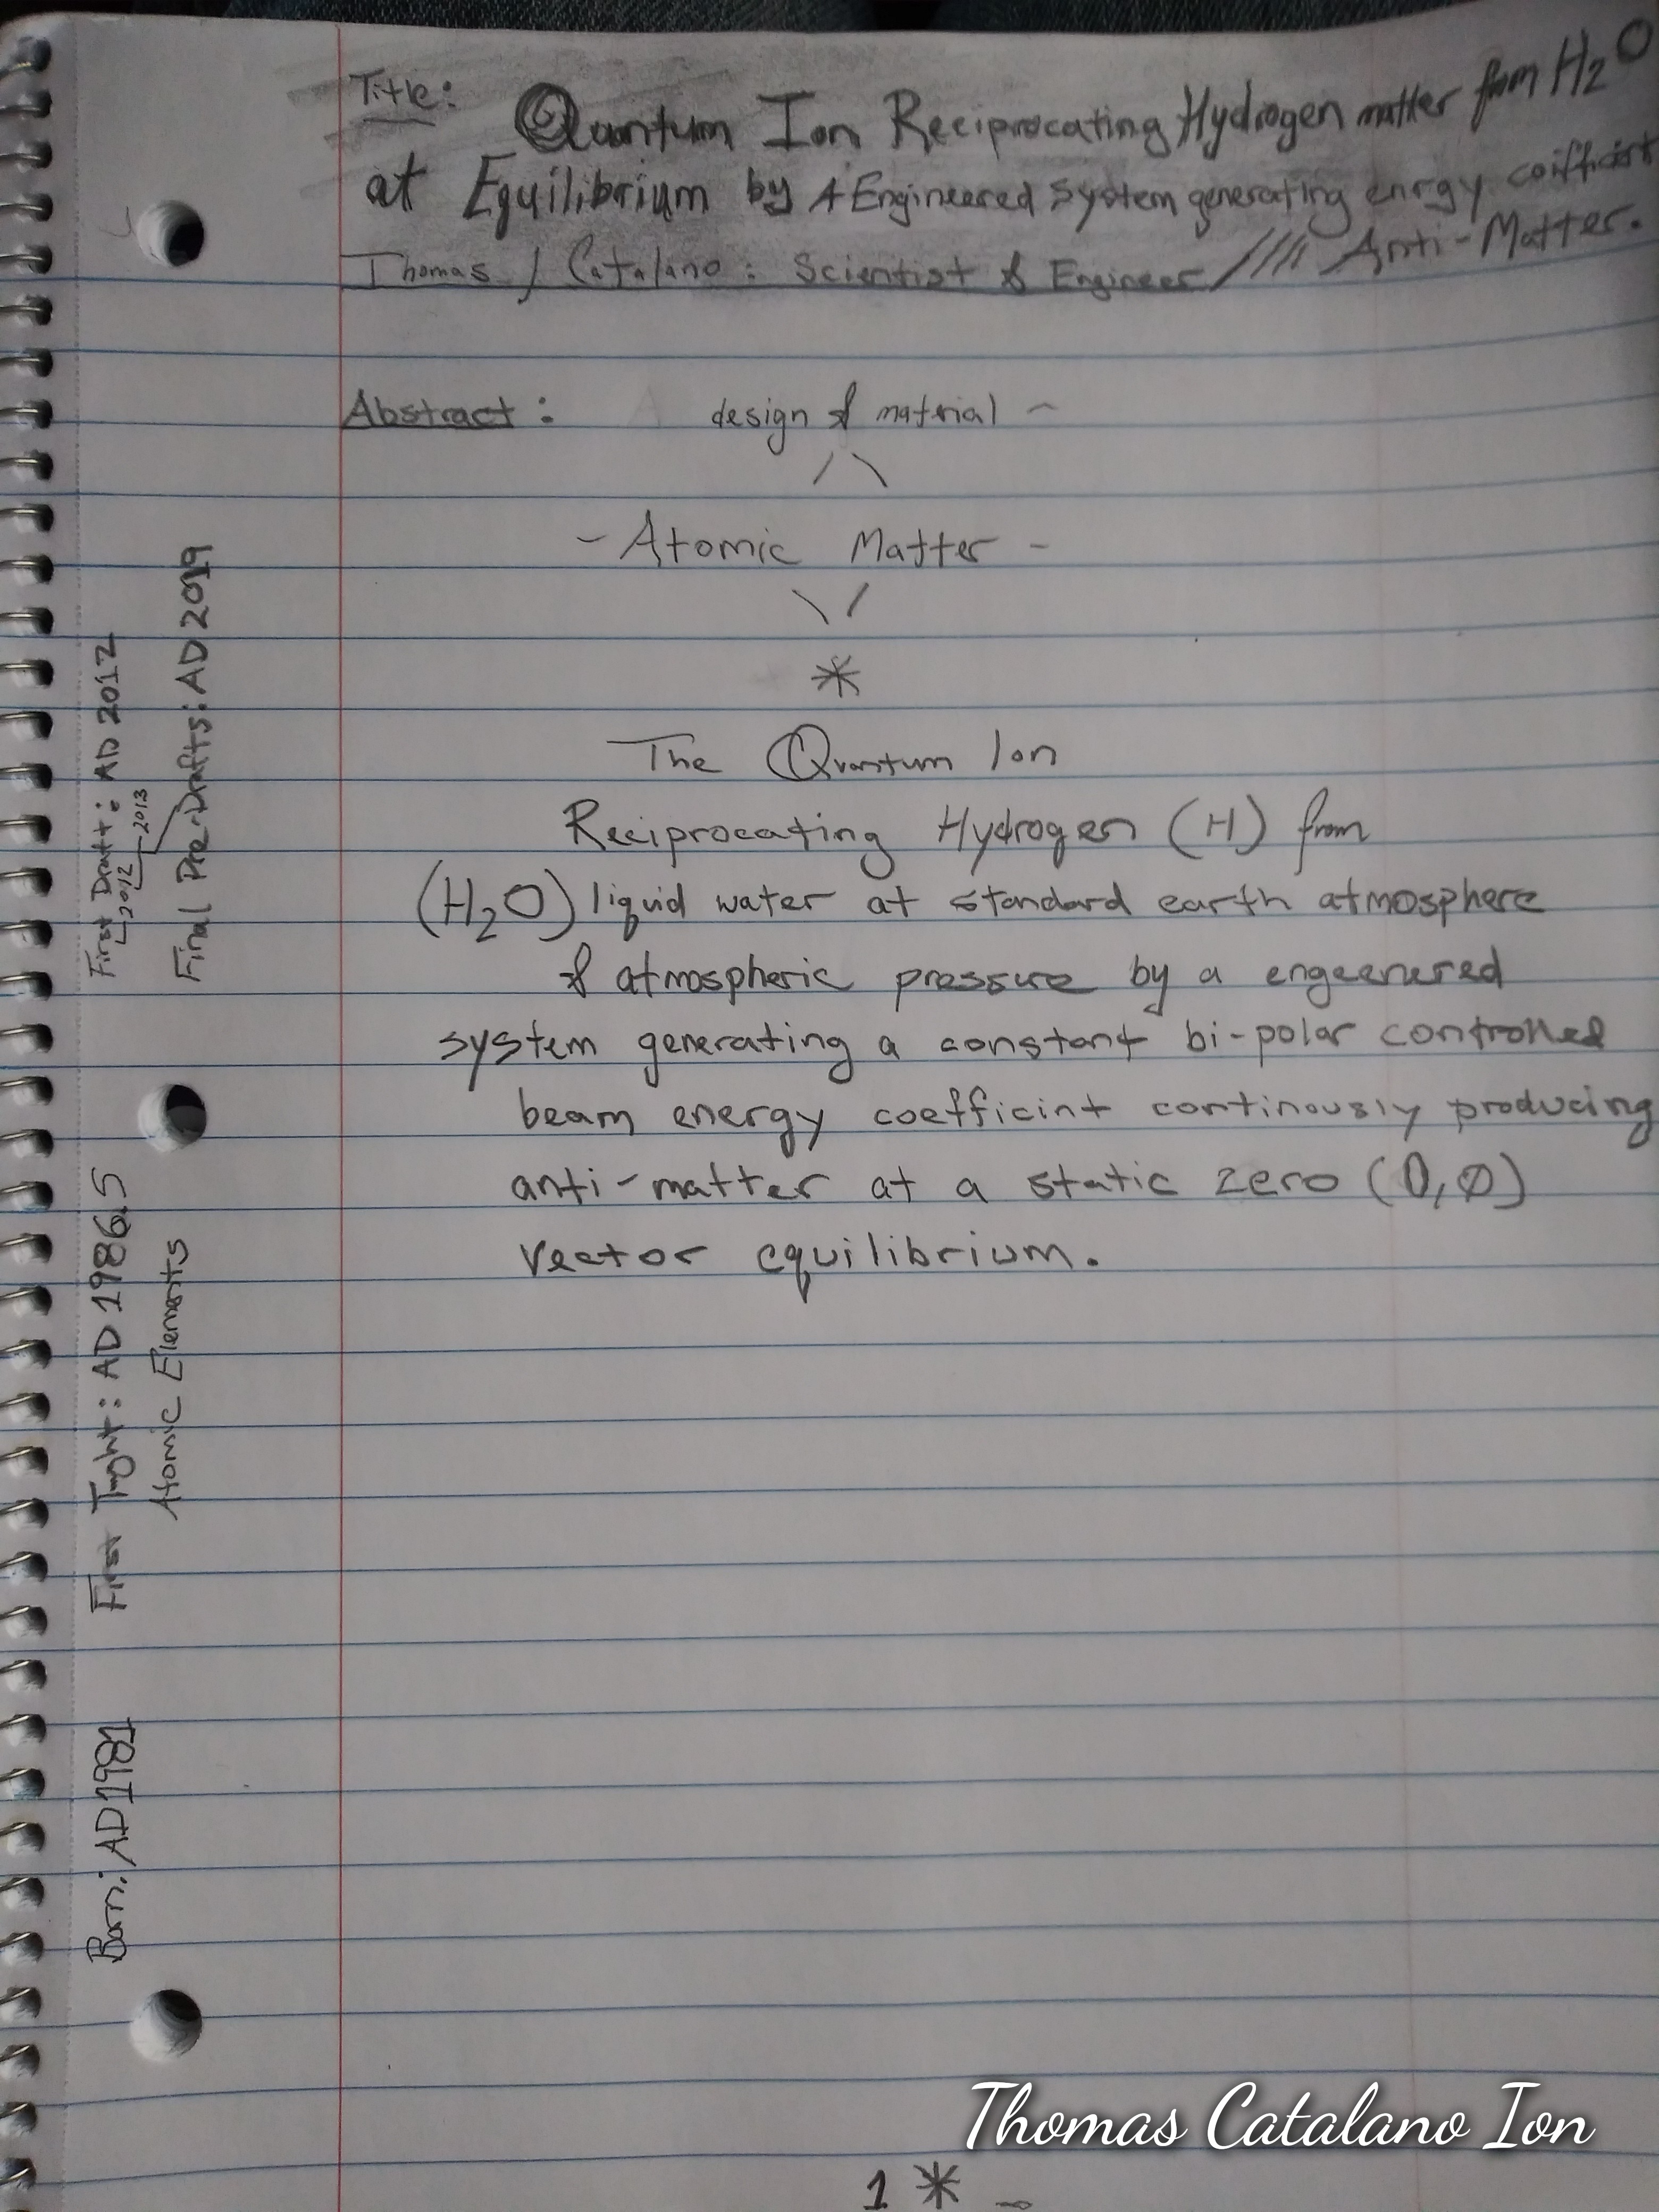 Title: Quantum Ion Reciprocating Hydrogen matter from H2O
at Equilibrium by A Engineered System generating enrgy coifficist
Thomas J Catalano : Scientist & Engineer //// Anti-Matter.
Abstract : design & material ~
/ \
- Atomic Matter -
\ /
*
The Quantum Ion
Reciprocating Hydrogen (H) from
(H2O) liquid water at standard earth atmosphere
& atmospheric pressure by a engeenered
system generating a constant bi-polar controlled
beam energy coefficint continously producing
anti-matter at a static zero (0,Ø)
vector equilibrium.
First Draft : AD 2012
2012 - 2013
Final Pre-Drafts: AD 2019
First Tught : AD 1986.5
Atomic Elements
Born: AD 1981
Thomas Catalano Ion
1 *